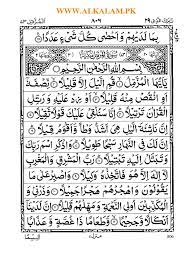 WWW.ALKALAM.PK
بِمَا لَدَيْهِمْ وَاَحْصٰى كُلَّ شَيْءٍ عَدَدًا
بِسْمِ اللّٰهِ الرَّحْمٰنِ الرَّحِيْمِ
يٰٓاَيُّهَا الْمُزَّمِّلُ قُمِ الَّيْلَ اِلَّا قَلِيْلًا نِّصْفَهٗٓ
اَوِ انْقُصْ مِنْهُ قَلِيْلًا اَوْ زِدْ عَلَيْهِ وَرَتِّلِ
الْقُرْاٰنَ تَرْتِيْلًا اِنَّا سَنُلْقِيْ عَلَيْكَ قَوْلًا ثَقِيْلًا اِنَّ
نَاشِئَةَ الَّيْلِ هِيَ اَشَدُّ وَطْاً وَّاَقْوَمُ قِيْلًا
اِنَّ لَكَ فِي النَّهَارِ سَبْحًا طَوِيْلًا وَاذْكُرِ اسْمَ رَبِّكَ
وَتَبَتَّلْ اِلَيْهِ تَبْتِيْلًا رَبُّ الْمَشْرِقِ وَالْمَغْرِبِ
لَآ اِلٰهَ اِلَّا هُوَ فَاتَّخِذْهُ وَكِيْلًا وَاصْبِرْ عَلٰى مَا
يَقُوْلُوْنَ وَاهْجُرْهُمْ هَجْرًا جَمِيْلًا وَذَرْنِيْ وَ
الْمُكَذِّبِيْنَ اُولِي النَّعْمَةِ وَمَهِّلْهُمْ قَلِيْلًا اِنَّ لَدَيْنَآ
اَنْكَالًا وَّجَحِيْمًا وَّطَعَامًا ذَا غُصَّةٍ وَّعَذَابًا